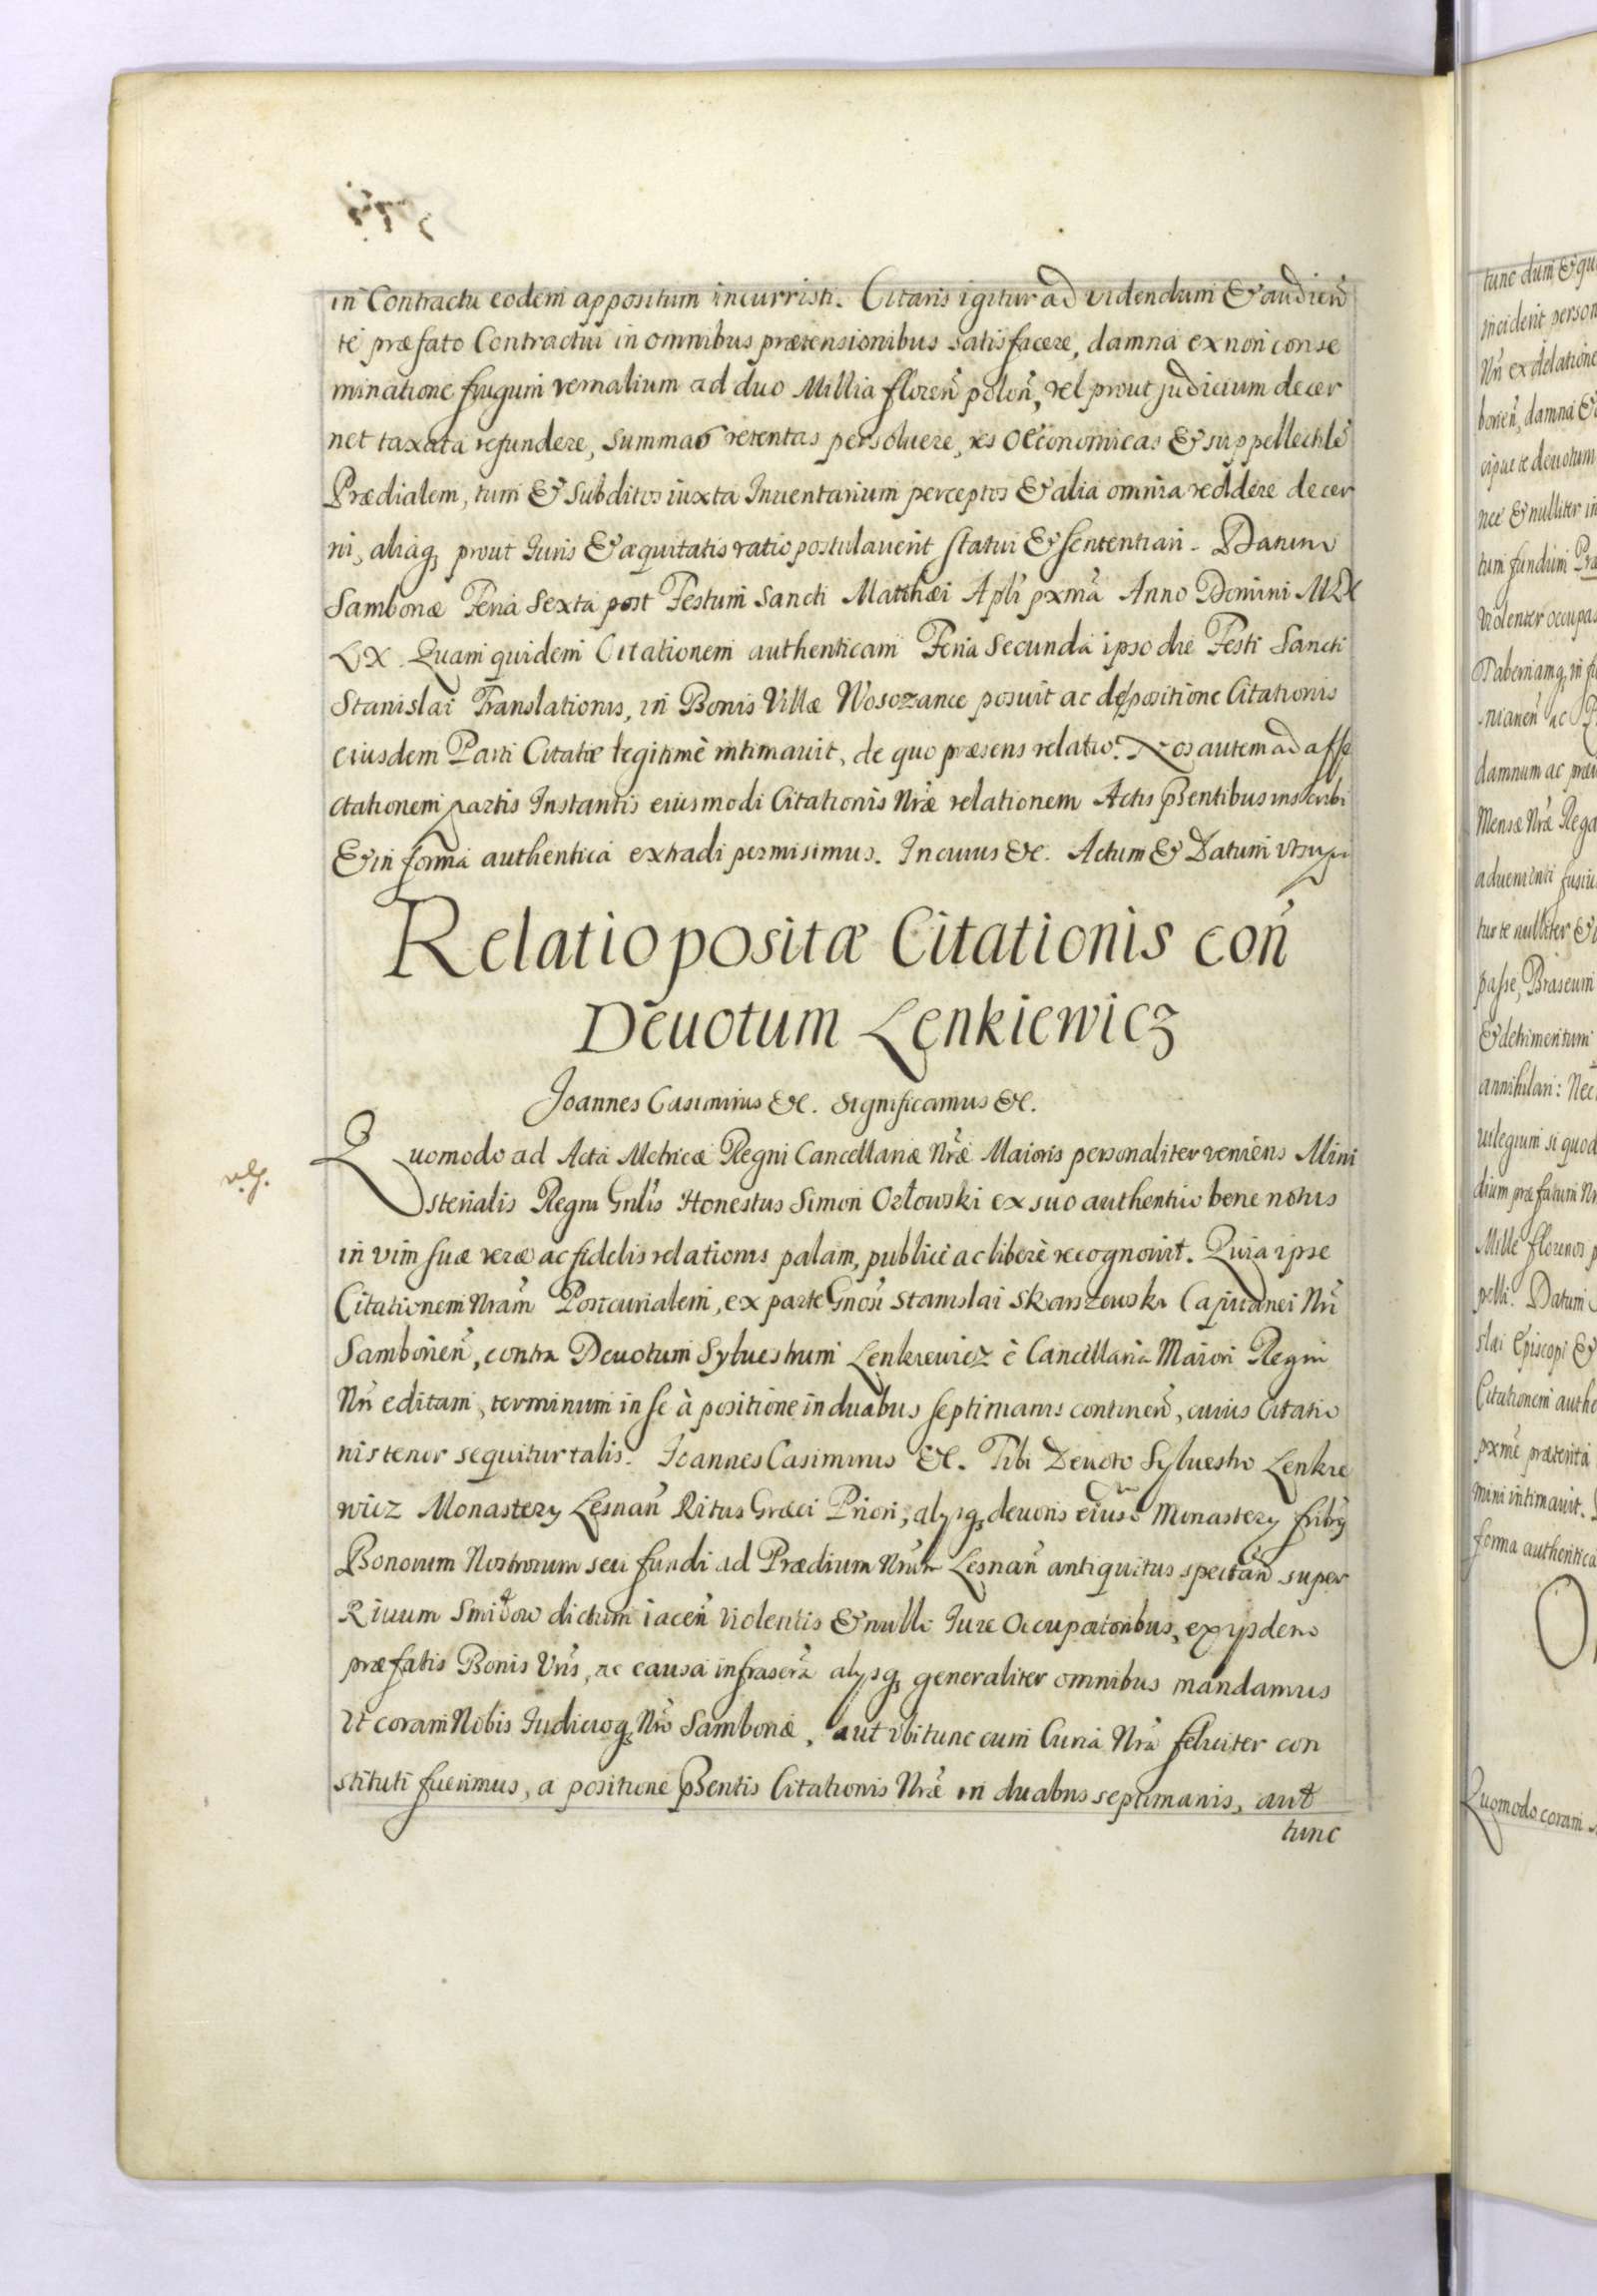 in Contractu eodem appositum incurristi. Citaris igitur ad videndum & audien̄
te præfato Contractui in omnibus prætensionibus satisfacere, damna ex non conse
minatione frugum vernalium ad duo Millia floren̄ polon̄, vel prout judicium decer
net taxata refundere, summas retentas persoluere, res Oeconomicas & suppellectile
Prædialem, tum & Subditos iuxta Inuentarium perceptos & alia omnia reddere decer
ni, aliaq, prout Iuris & æquitatis ratio postulauerit statui & sententiari. Datum
Samboriæ Feria Sexta post Festum Sancti Matthæi Apli pxma Anno Domini MD
LX. Quam quidem Citationem authenticam Feria Secunda ipso die Festi Sancti
Stanislai Translationis, in Bonis Villæ Wosozance posuit ac de positione Citationis
eiusdem Parti Citatæ legitimè intimauit, de quo præsens relatio. Nos autem ad affe
ctationem partis Instantis eiusmodi Citationis Nræ relationem Actis Psentibus inscribi
& in forma authentica extradi permisimus. In cuius &c. Actum & Datum vtsup
Relatio positæ Citationis con̄
Deuotum Lenkiewicz
Joannes Casimirus &c. Significamus &c.
Quomodo ad Acta Metricæ Regni Cancellariæ Nræ Maioris personaliter veniens Mini
sterialis Regni Gnlis Honestus Simon Orłowski ex suo authentico bene notus
in vim suæ veræ ac fidelis relationis palam, publicè ac liberè recognouit. Quia ipse
Citationem Nram Postcurialem, ex parte Gnosi Stanislai Skarszewski Capitanei Nri
Samborien̄, contra Deuotum Syluestrum Lenkiewicz è Cancellaria Maiori Regni
Nri editam, terminum in se à positione in duabus septimanis continen̄, cuius Citatio
nis tenor sequitur talis. Joannes Casimirus &c. Tibi Deuoto Syluestro Lenkie
wicz Monastery Lesnan̄ Ritus Græci Priori, alysq, deuotis eiusd Monastery frībȝ
Bonorum Nostrorum seu fundi ad Prædium Nrum Lesnan̄ antiquitus spectan̄ super
Riuum dictum iacen̄ violentis & nullo Iure Occupatoribus, ex ijsdem
præfatis Bonis Vris, ac causa infrascra alysq, generaliter omnibus mandamus
Vt coram Nobis Iudicioq, Nro Samboriæ, aut vbi tunc cum Curia Nra feliciter con
stituti fuerimus, a positione Psentis Citationis Nræ in duabus septimanis, aut
tunc